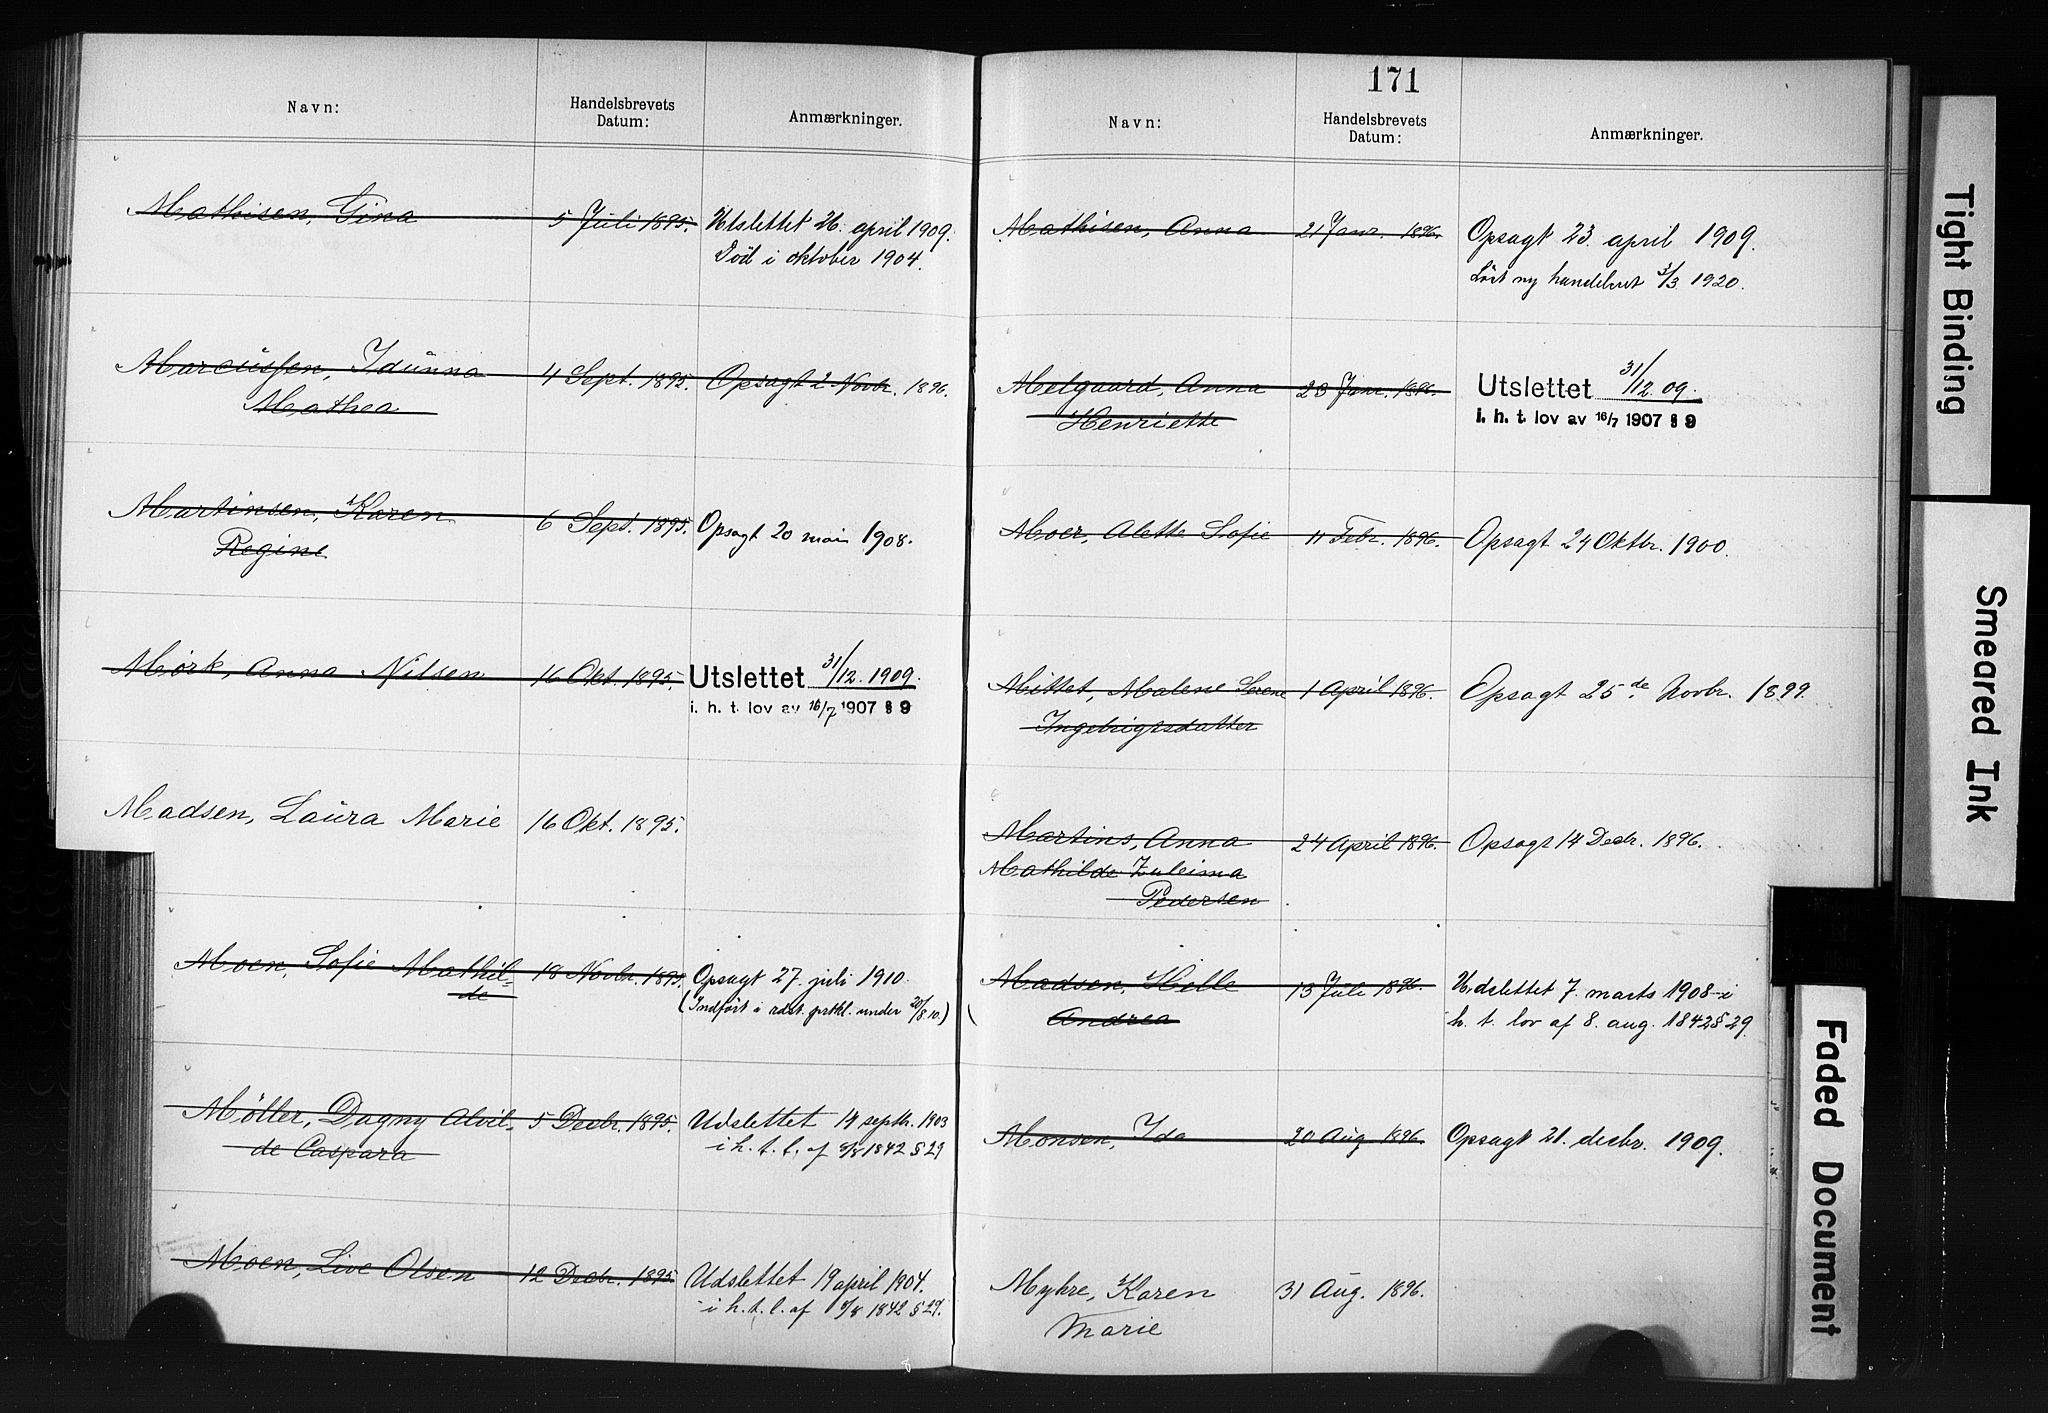 Navn:
Handelsbrevets
Datum:
Anmærkninger.
Mathisen, Gina
5 Juli 1895.
Utslettet 26. april 1909.
Död i oktober 1904.
Marcussen, Idunna
Mathea
4 Sept. 1895.
Opsagt 2 Novbr. 1896.
Martinsen, Karen
Regine
6 Sept. 1895.
Opsagt 20 mai 1908.
Mörk, Anna Nilsen
16 Okt. 1895.
Utslettet 31/12. 1909.
i. h. t. lov av 16/7 1907 § 9
Madsen, Laura Marie
16 Okt. 1895.
Moen, Sofie Mathil-
de
18 Novbr. 1895.
Opsagt 27. juli 1910.
(Indfört i rdst. prtkl. under 20/8 10.)
Möller, Dagny Alvil-
de Caspara
5 Decbr. 1895.
Udslettet 14 septbr. 1903
i h. t. l. af 8/8 1842 § 29
Moen, Live Olsen
12 Decbr. 1895
Udslettet 19 april 1904.
i h. t. l. af 8/8 1842 § 29.
171
Navn:
Handelsbrevets
Datum:
Anmærkninger.
Mathisen, Anna
21 Janr. 1896.
Opsagt 23. april 1909.
Löst ny handelsbret 3/3 1920.
Melgaard, Anna
Henriette
23 Janr. 1896.
Utslettet 31/12. 09.
i. h. t. lov av 16/7 1907 § 9
Moer, Alette Sofie
11 Febr. 1896.
Opsagt 24 Oktbr. 1900.
Mittet, Malene Serene
Ingebrigtsdatter
1 April 1896.
Opsagt 25de Novbr. 1899.
Martins, Anna
Mathilde Zuleima
Pedersen
24 April 1896.
Opsagt 14 Decbr. 1896.
Madsen, Helle
Andrea
13 Juli 1896.
Udslettet 7. marts 1908 i
h. t. lov af 8. aug. 1842 § 29.
Monsen, Ida
20 Aug. 1896.
Opsagt 21. decbr. 1909.
Myhre, Karen
Marie
31 Aug. 1896.
Tight Binding
Smeared Ink
Faded Document